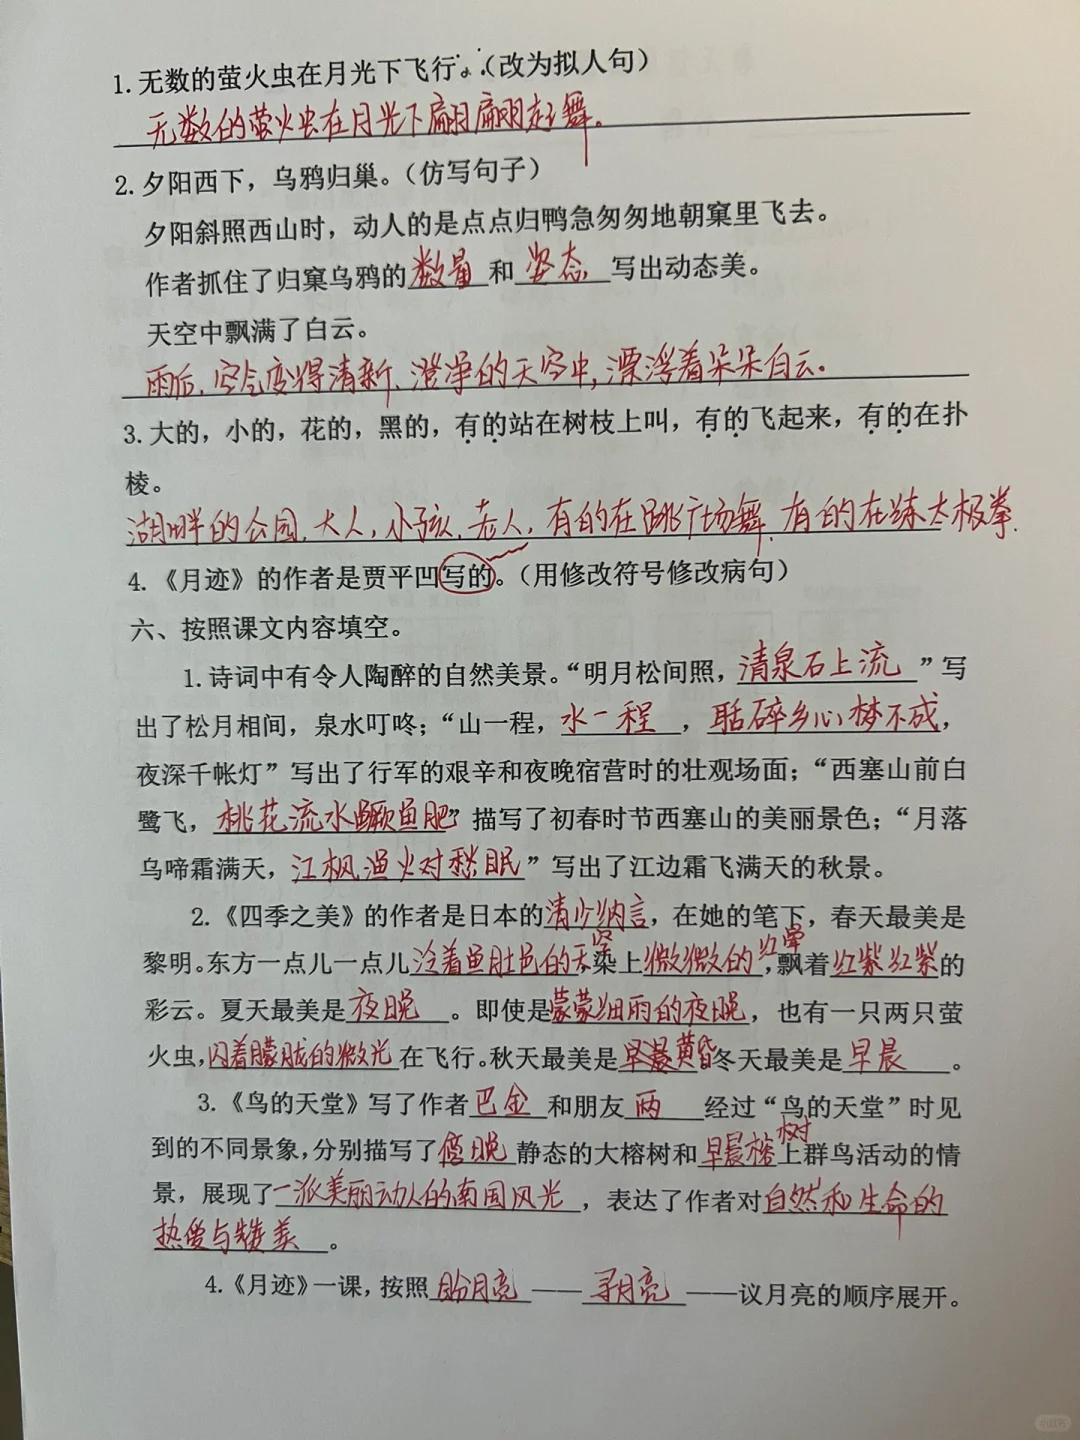 1. 无数的萤火虫在月光下飞行。(改为拟人句)
无数的萤火虫在月光下翩翩起舞。
2. 夕阳西下，乌鸦归巢。(仿写句子)
夕阳斜照西山时，动人的是点点归鸦急匆匆地朝窠里飞去。
作者抓住了归窠乌鸦的数量和姿态写出动态美。
天空中飘满了白云。
雨后，空气变得清新，澄净的天空中，漂浮着朵朵白云。
3. 大的，小的，花的，黑的，有的站在树枝上叫，有的飞起来，有的在扑
棱。
湖畔的公园，大人，小孩，老人，有的在跳广场舞，有的在练太极拳。
4. 《月迹》的作者是贾平凹写的。(用修改符号修改病句)
六、按照课文内容填空。
1. 诗词中有令人陶醉的自然美景。“明月松间照，清泉石上流”写
出了松月相间，泉水叮咚；“山一程，水一程，聒碎乡心梦不成，
夜深千帐灯”写出了行军的艰辛和夜晚宿营时的壮观场面；“西塞山前白
鹭飞，桃花流水鳜鱼肥”描写了初春时节西塞山的美丽景色；“月落
乌啼霜满天，江枫渔火对愁眠”写出了江边霜飞满天的秋景。
2. 《四季之美》的作者是日本的清少纳言，在她的笔下，春天最美是
黎明。东方一点儿一点儿泛着鱼肚色的天空染上微微的红晕，飘着红紫红紫的
彩云。夏天最美是夜晚。即使是蒙蒙细雨的夜晚，也有一只两只萤
火虫，闪着朦胧的微光在飞行。秋天最美是黄昏冬天最美是早晨。
3. 《鸟的天堂》写了作者巴金和朋友两经过“鸟的天堂”时见
到的不同景象，分别描写了傍晚静态的大榕树和早晨榕树上群鸟活动的情
景，展现了一派美丽动人的南国风光，表达了作者对自然和生命的
热爱与赞美。
4. 《月迹》一课，按照盼月亮——寻月亮——议月亮的顺序展开。
小红书